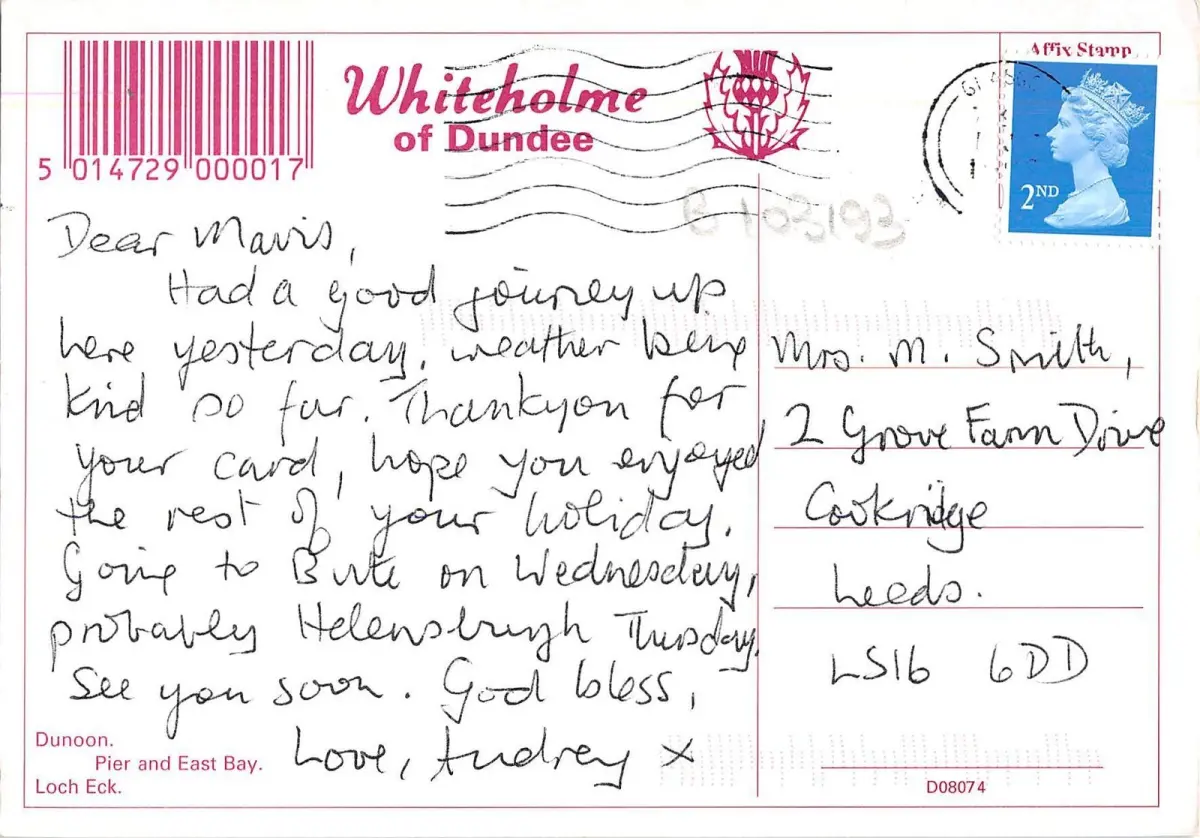 Affix Stamp
Whiteholme
of Dundee
5 014729 000017
2ND
B103193
Dear Mavis,
Had a good journey up
here yesterday, weather being
kind so far. Thankyou for
your card, hope you enjoyed
the rest of your holiday.
Going to Bute on Wednesday,
probably Helensburgh Thursday.
See you soon. God bless,
Love, Audrey x
Mrs. M. Smith,
2 Grove Farm Drive
Cookridge
Leeds.
LS16 6DD
Dunoon.
Pier and East Bay.
Loch Eck.
D08074